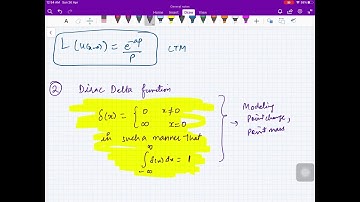 12:54 AM Sun 26 Apr
L(u(x-a)) = e^-ap / p CTM
② Dirac Delta function
δ(x) = { 0 x≠0
∞ x=0
in such a manner that
∫_-∞^∞ δ(x) dx = 1
→ Modeling
Point charge,
point mass